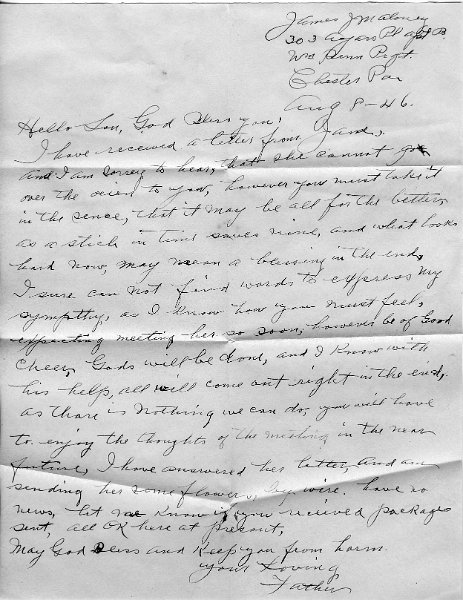 James J Maloney
303 Ayars Pl apt B.
Wm Penn Projt.
Chester Pa
Aug 8-46.
Hello Son, God Bless you,
I have received a letter from Jane,
and I am sorry to hear, that she cannot go
over the to you, however you must take it
in the sence, that it may be all for the better,
as a stich in time saves nine, and what looks
hard now, may mean a blessing in the end,
I sure can not find words to express my
sympathy, as I know how you must feel,
expecting meeting her so soon, however be of Good
Cheer, Gods will be done, and I know with
his help, all will come out right in the end,
as thare is nothing we can do, you will have
to enjoy the thoughts of the meeting in the near
future, I have answered her letter, and am
sending her some flowers, by wire. have no
news, let me know if you recived packages
sent, all OK here at present,
May God Bless and Keep you from harm
your Loving
Father